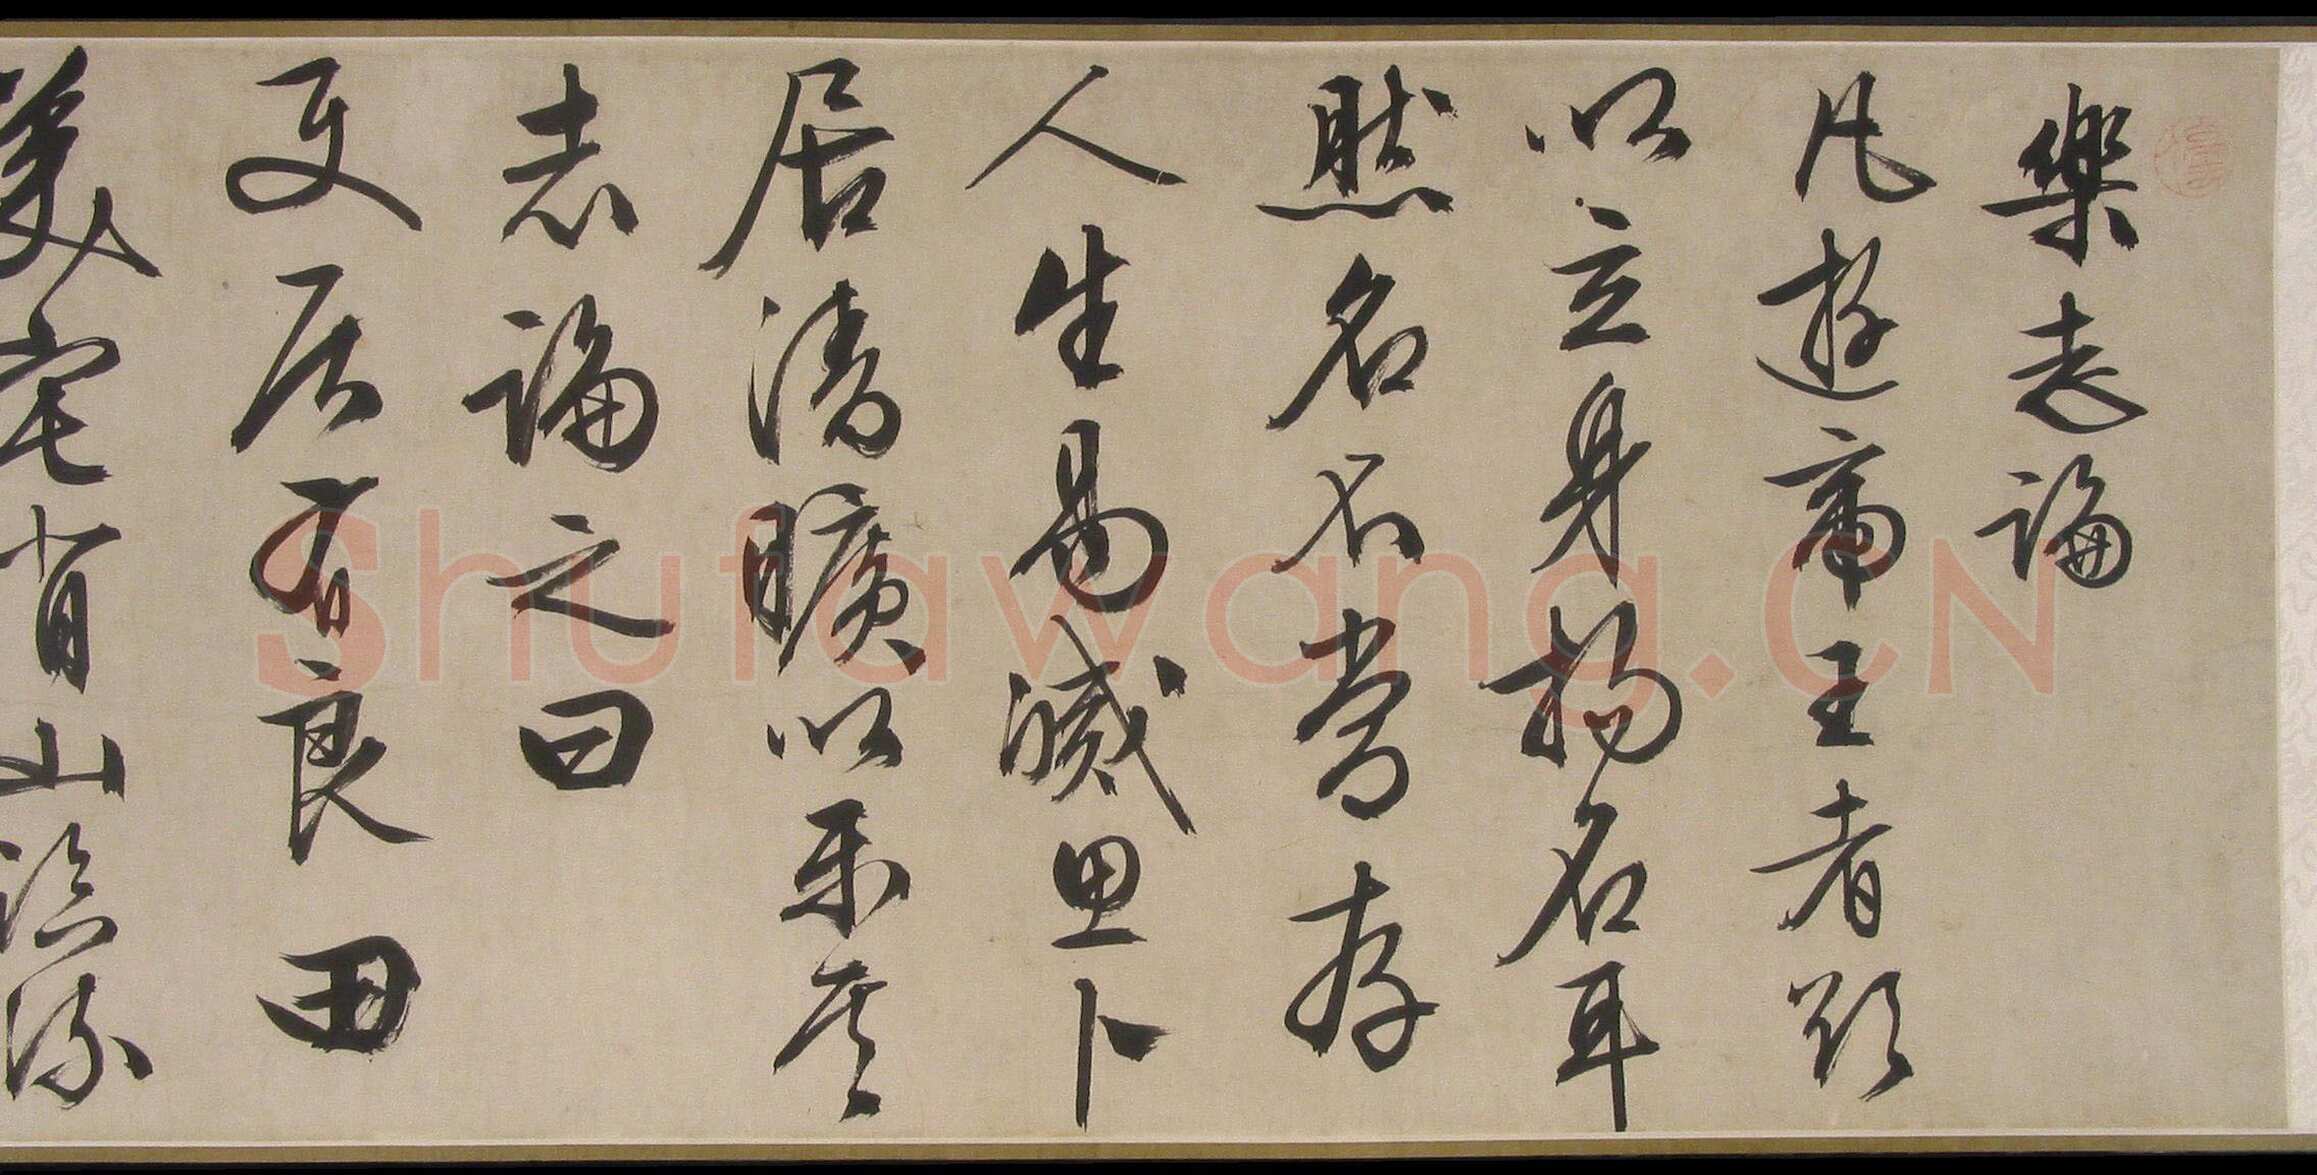 樂志論
凡遊帝王者欲
以立身揚名耳
然名不常存
人生易滅思卜
居清曠以樂其
志論之曰
使居有良田
美宅背山臨流
Shufawang.CN